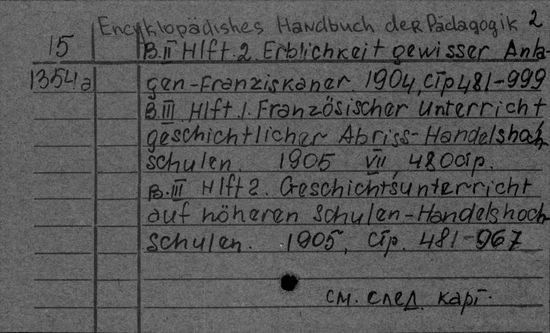 Encyklopädishes Handbuch der Pädagogik 2
15 B.II Hlft.2. Erblichkeit gewisser Anla-
1354a gen-Franziskaner 1904, стр 481-999
B.III Hlft.1. Französischer Unterricht
geschichtlicher Abriss-Handelshoch
schulen. 1905 VII, 480 стр.
B.III Hlft 2. Geschichtsunterricht
auf höheren Schulen-Handelshoch
schulen. 1905, стр. 481-967
см. след. карт.